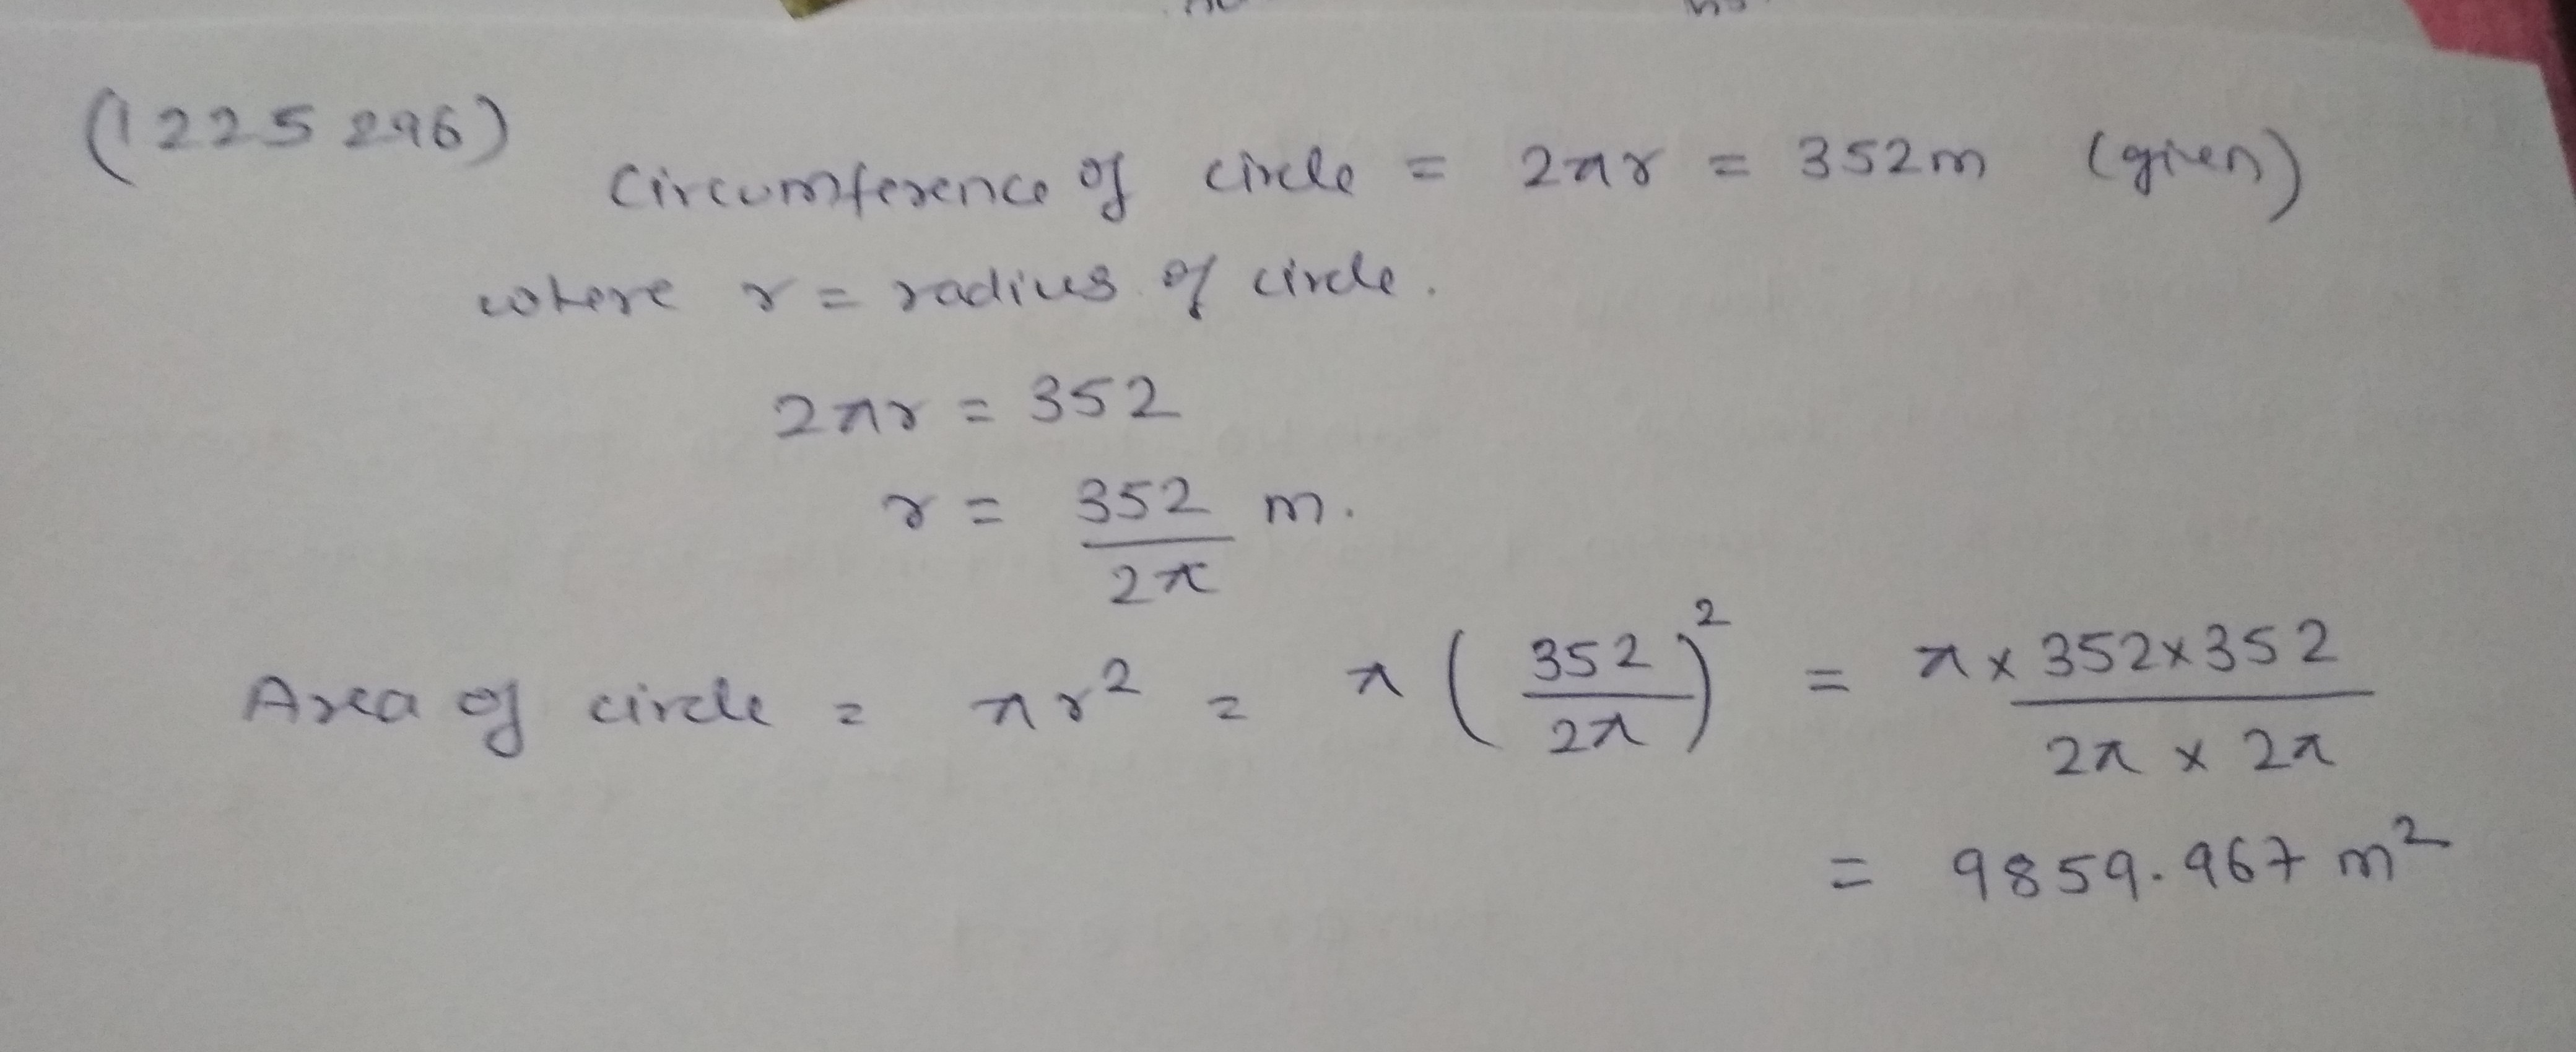 (1225296)
Circumference of circle = 2πr = 352m (given)
where r = radius of circle.
2πr = 352
r = 352/2π m.
Area of circle = πr² = π(352/2π)² = π×352×352/2π × 2π
= 9859.967 m²